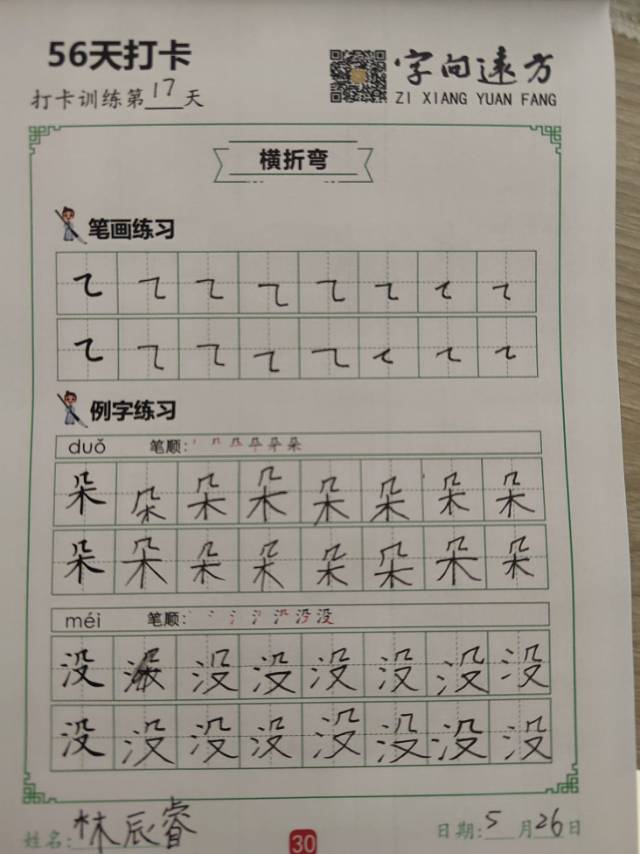 56天打卡
字向远方
打卡训练第17天
ZI XIANG YUAN FANG
横折弯
笔画练习
例字练习
duǒ 笔顺:
朵 朵 朵 朵 朵 朵 朵 朵
朵 朵 朵 朵 朵 朵 朵 朵
méi 笔顺:
没 没 没 没 没 没 没
没 没 没 没 没 没 没 没
姓名: 林辰睿
30
日期: 5月26日